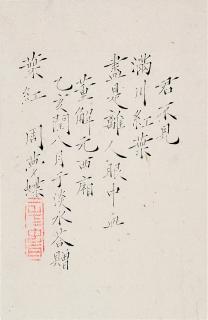 君不見
滿川紅葉
盡是離人眼中血
董解元西廂
乙亥閏八月于淡水答贈
葉紅
周夢蝶